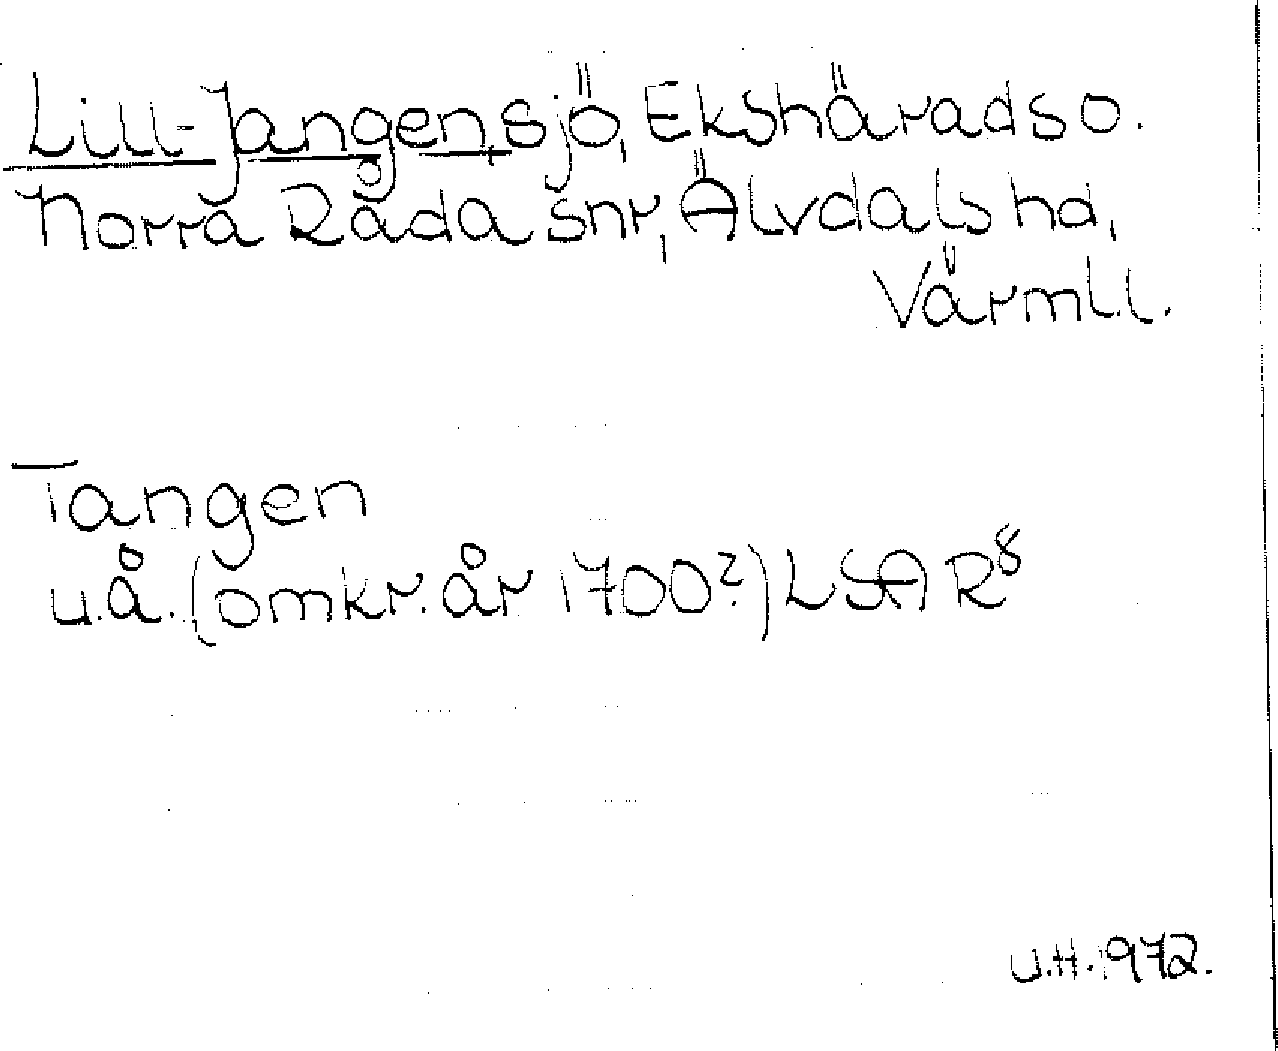 Lill-Jangen, sjö, Ekshärads o.
Norra Råda snr, Älvdals hd,
Värml.l.
Tangen
u.å. (omkr. år 1700?) LSA R8
U.H. 1972.